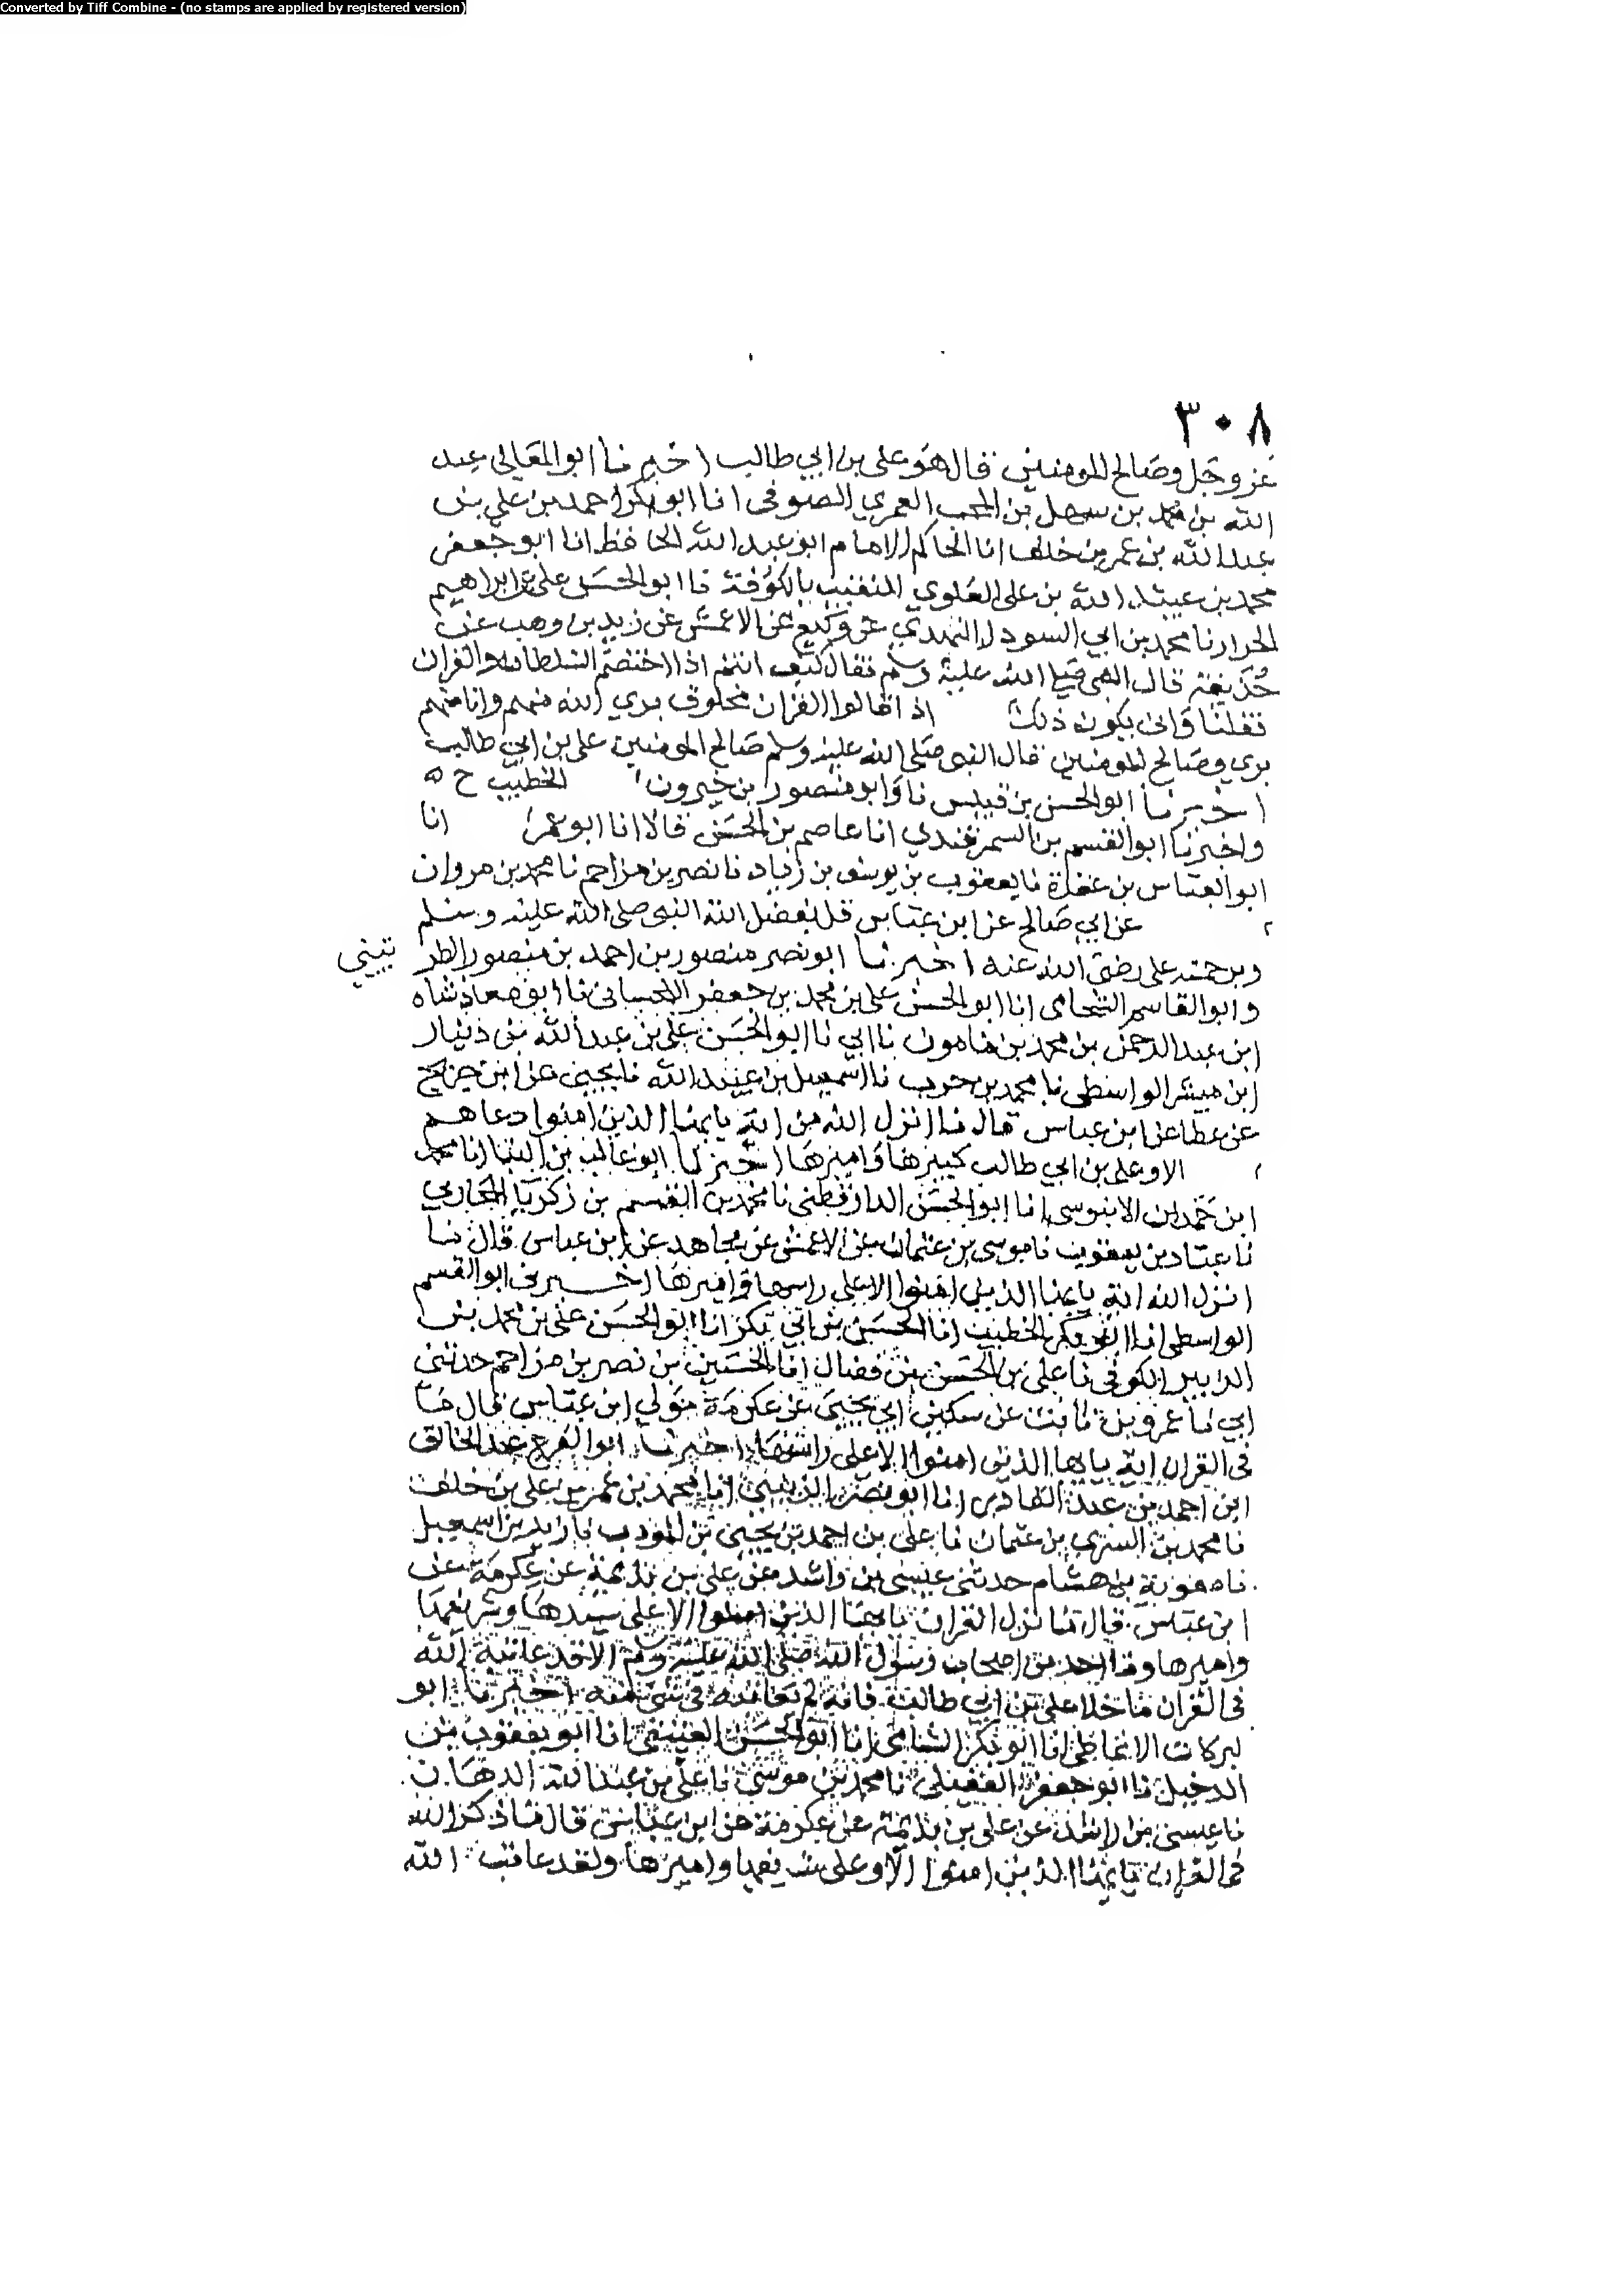 Converted by Tiff Combine - (no stamps are applied by registered version)
٣٠٨
عز وجل وصالح المومنين قال هو على بن ابي طالب اخبرنا ابو المعالي عبد
الله بن محمد بن سهل بن المحب العمري الصوفى انا ابو بكر احمد بن علي بن
عبد الله بن عمر بن خلف انا الحاكم الامام ابو عبد الله الحافظ انا ابو جعفر
محمد بن عبيد الله بن على العلوي النقيب بالكوفة نا ابو الحسن على بن ابراهيم
نا محمد بن ابي السود النهدي عن وكيع عن الاعمش عن زيد بن وهب عن
حذيفة قال النبى صلى الله عليه وسلم فقال كيف انتم اذا اختصم السلطان والقران
فقلنا وانى يكون ذلك اذا قالوا القران مخلوق بري الله منهم وانا منهم
بري وصالح المومنين قال النبى صلى الله عليه وسلم صالح المومنين على بن ابي طالب
اخبرنا ابو الحسن بن قبيس نا وابو منصور بن خيرون الخطيب ح
واخبرنا ابو القسم بن السمرقندي انا عاصم بن الحسن قالا انا ابو عمر انا
ابو العباس بن عقدة نا يعقوب بن يوسف بن زياد نا نصر بن مزاحم نا محمد بن مروان
عن ابي صالح عن ابن عباس قل بفضل الله النبى صلى الله عليه وسلم
وبرحمته على رضى الله عنه اخبرنا ابو نصر منصور بن احمد بن منصور الطر
تيثي
وابو القاسم الشحامى انا ابو الحسن على بن محمد بن جعفر نا ابو معاذ شاه
ابن عبد الرحمن بن محمد بن مامون نا ابي نا ابو الحسن على بن عبد الله بن دينار
ابن مبشر الواسطى نا محمد بن حرب نا اسمعيل بن عبيد الله نا يحيى عن ابن جريج
عن عطا عن ابن عباس قال ما انزل الله من اية يايها الذين امنوا دعاهم
الا وعلى بن ابي طالب كبيرها واميرها اخبرنا ابو غالب بن البنا انا محمد
ابن احمد بن الابنوسى انا ابو الحسن الدارقطنى نا محمد بن القسم بن زكريا المحاربي
نا عباد بن يعقوب نا موسى بن عثمان عن الاعمش عن مجاهد عن ابن عباس قال ما
انزل الله اية يايها الذين امنوا الا على راسها واميرها اخبرنا ابو القسم
الواسطى انا ابو بكر الخطيب انا الحسن بن ابي بكر انا ابو الحسن على بن محمد بن
الزبير الكوفى نا على بن الحسن بن فضال انا الحسين بن نصر بن مزاحم حدثنى
ابي نا عمرو بن ثابت عن سكين ابي يحيى عن عكرمة مولى ابن عباس قال ما
فى القران اية يايها الذين امنوا الا على راسها اخبرنا ابو الفرج عبد الخالق
ابن احمد بن عبد القادر انا ابو نصر الزينبى انا محمد بن عمر بن على بن خلف
نا محمد بن السري بن عثمان نا على بن احمد بن يحيى بن المودب نا زيد بن اسمعيل
نا معوية بن هشام حدثنى عيسى بن راشد عن على بن بذيمة عن عكرمة عن
ابن عباس قال ما نزل القران يايها الذين امنوا الا على سيدها وشريفها
واميرها وما احد من اصحاب رسول الله صلى الله عليه وسلم الا قد عاتبه الله
فى القران ما خلا على بن ابي طالب فانه لم يعاتبه فى شى منه اخبرنا ابو
لبركات الانماطى انا ابو بكر الشامى انا ابو الحسن العتيقى انا ابو يعقوب بن
الدخيل نا ابو جعفر العقيلى نا محمد بن موسى نا على بن عبد الله الدهان
نا عيسى بن راشد عن على بن بذيمة عن عكرمة عن ابن عباس قال ما ذكر الله
فى القران يايها الذين امنوا الا وعلى شريفها واميرها ولقد عاتب الله